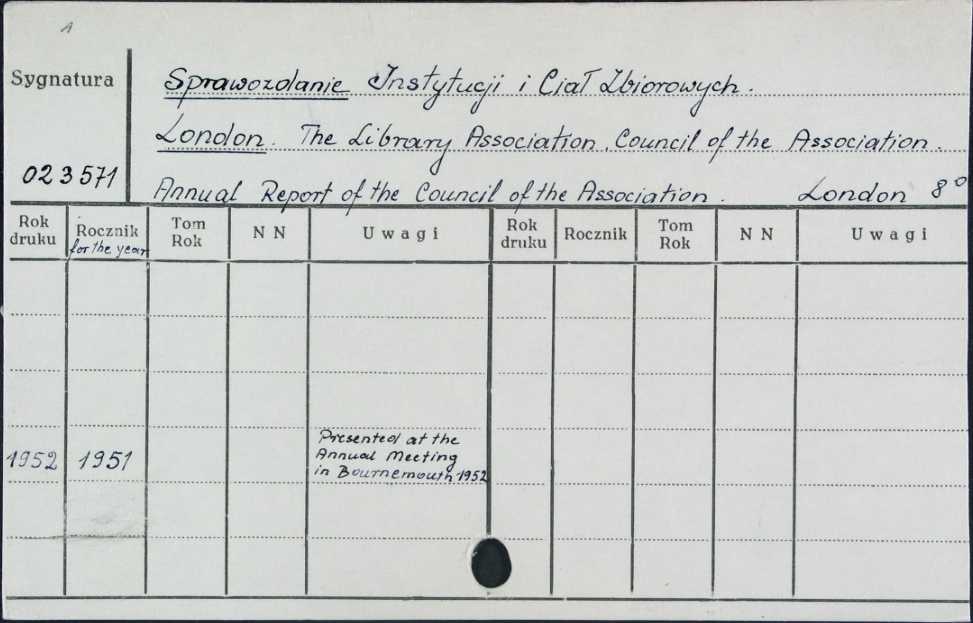 1
Sygnatura
Sprawozdanie Instytucji i Ciał Zbiorowych.
London. The Library Association. Council of the Association.
023571
Annual Report of the Council of the Association. London 8°
Rok druku Rocznik for the year Tom Rok NN Uwagi Rok druku Rocznik Tom Rok NN Uwagi
Presented at the
1952 1951 Annual Meeting
in Bournemouth 1952